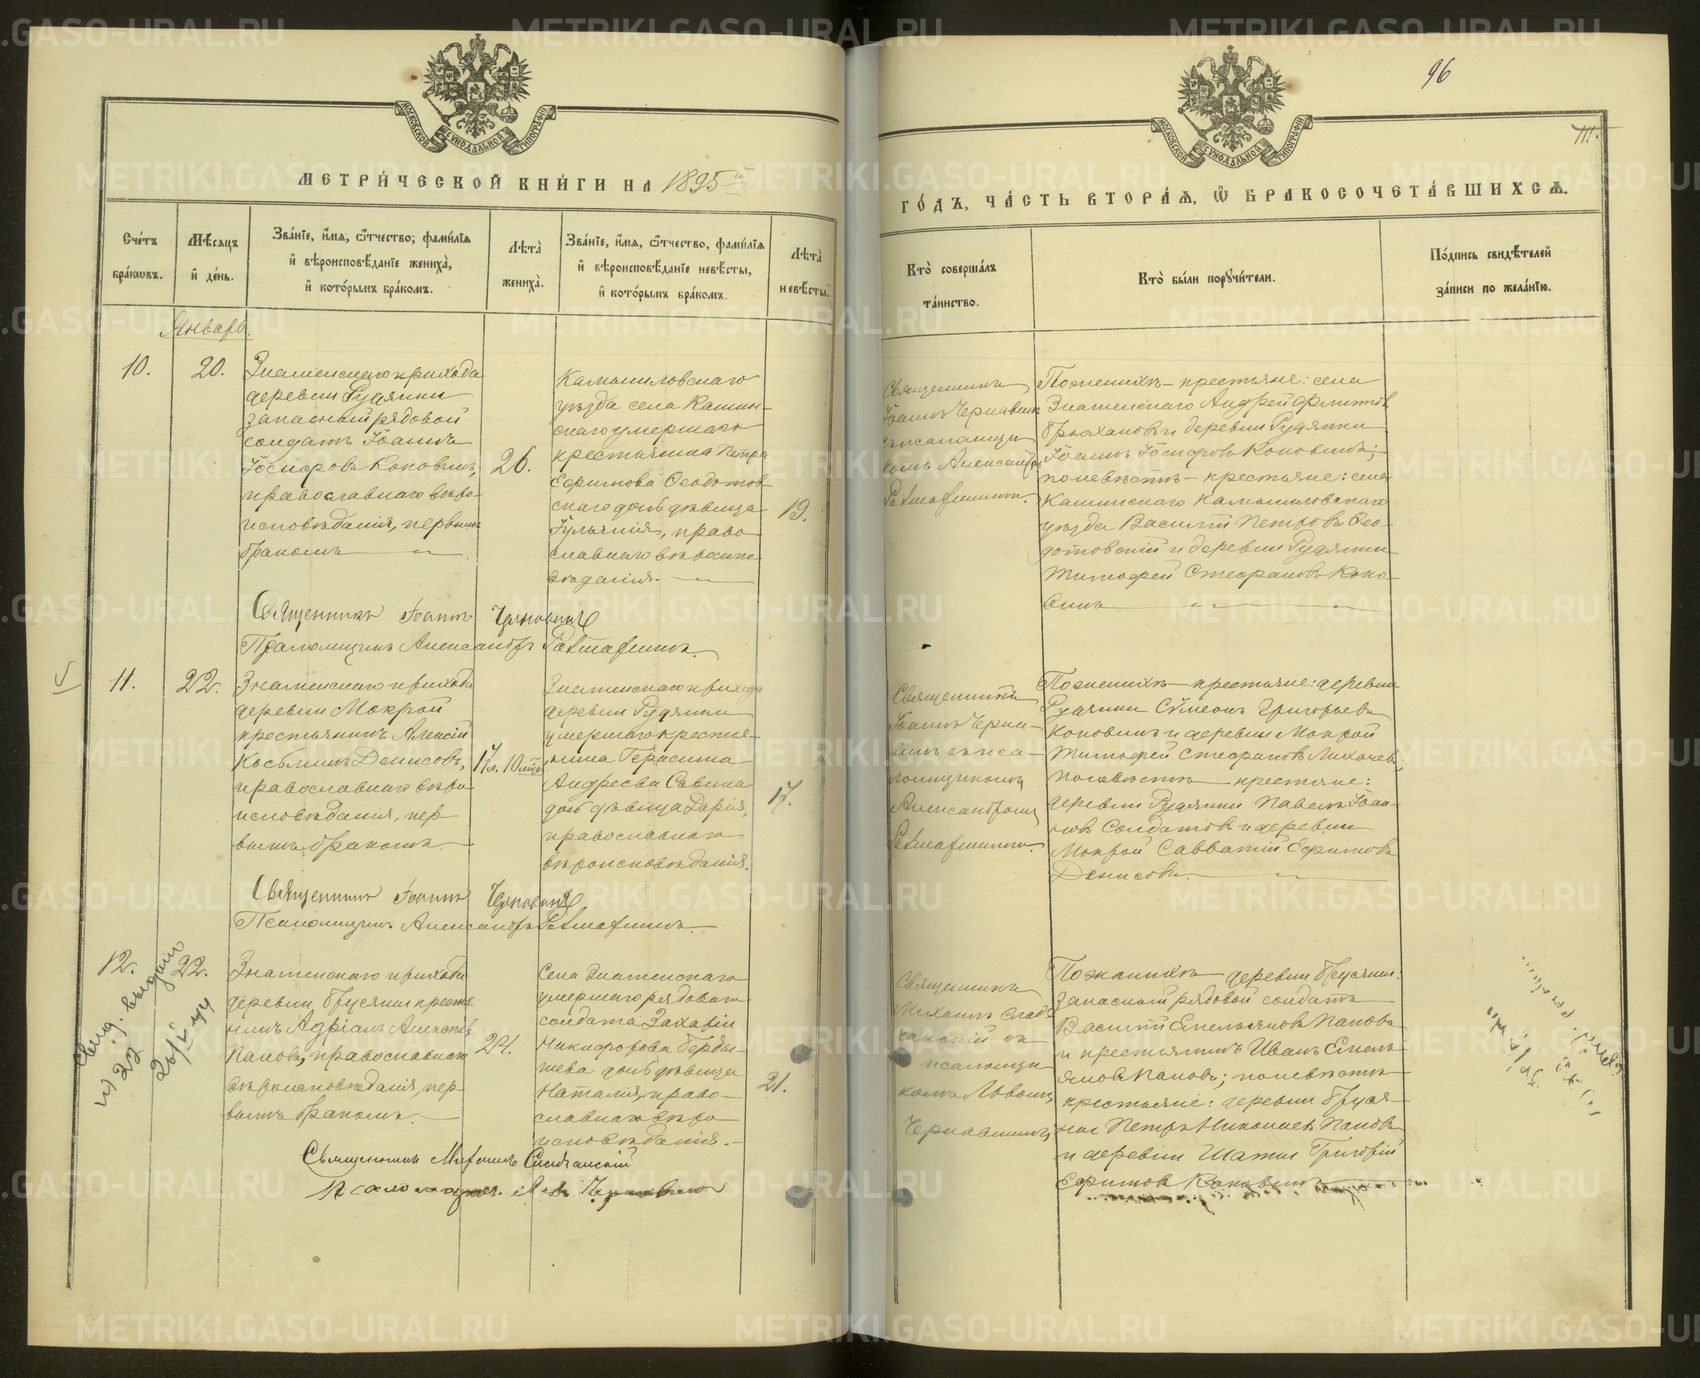 96
111.
МОСКОВСКОЙ СѴНОДАЛЬНОЙ ТИПОГРАФІИ
МОСКОВСКОЙ СѴНОДАЛЬНОЙ ТИПОГРАФІИ
МЕТРИ́ЧЕСКОЙ КНИ́ГИ НА 1895й
ГО́ДЪ, ЧА́СТЬ ВТОРА́Ѧ, Ѽ БРАКОСОЧЕТА́ВШИХСѦ.
Сче́тъ бра́кѡвъ.
Мѣ́сѧцъ и҆ де́нь.
Зва́нїе, и҆́мѧ, ѻ҆́тчество, фами́лїѧ и҆ вѣроисповѣ́данїе жениха̀, и҆ кото́рымъ бра́комъ.
Лѣта̀ жениха̀.
Зва́нїе, и҆́мѧ, ѻ҆́тчество, фами́лїѧ и҆ вѣроисповѣ́данїе невѣ́сты, и҆ кото́рымъ бра́комъ.
Лѣта̀ невѣ́сты.
Кто̀ соверша́лъ та́инство.
Кто̀ бы́ли порꙋчи́тели.
По́дпись свидѣ́телей за́писи по жела́нїю.
Январь.
10.
20.
Знаменскаго прихода
деревни Рудянки
запасный рядовой
солдатъ Іоаннъ
Іосифовъ Коковинъ,
православнаго вѣро-
исповѣданія, первымъ
бракомъ
26.
Камышловскаго
уѣзда села Кашин-
скаго умершаго
крестьянина Петра
Ефимова Ѳеодотов-
скаго дочь дѣвица
Іуліанія, право-
славнаго вѣроиспо-
вѣданія.
19.
Священникъ
Іоаннъ Чернавинъ
съ псаломщи-
комъ Александромъ
Словцовымъ
Поженихѣ - крестьяне: села
Знаменскаго Андрей
и деревни Рудянки
Іоаннъ Іосифовъ Коковинъ;
поневѣстѣ - крестьяне: села
Кашинскаго Камышловскаго
уѣзда Василій Петровъ Ѳео-
дотовскій и деревни Рудянки
Тимофей Стефановъ Коко-
винъ
Священникъ Іоаннъ Чернавинъ
Псаломщикъ Александръ
11.
22.
Знаменскаго прихода
деревни Мокрой
крестьянинъ Алексій
Косьминъ Денисовъ,
православнаго вѣро-
исповѣданія, пер-
вымъ бракомъ.
17 л. 10 мѣс.
Знаменскаго прихода
деревни Рудянки
умершаго крестья-
нина Герасима
Андреева Савина
дочь дѣвица Дарія,
православнаго
вѣроисповѣданія.
17.
Священникъ
Іоаннъ Черна-
винъ съ пса-
ломщикомъ
Александромъ
Поженихѣ - крестьяне: деревни
Рудянки Сѵмеонъ Григорьевъ
Коковинъ и деревни Мокрой
Тимофей Стефановъ Лихачевъ,
поневѣстѣ крестьяне:
деревни Рудянки Павелъ Іоан-
новъ Солдатовъ и деревни
Мокрой Савватій Ефимовъ
Денисовъ.
Священникъ Іоаннъ Чернавинъ
Псаломщикъ Александръ
12.
22.
Знаменскаго прихода
деревни Брусяны крестья-
нинъ Адріанъ Алексѣевъ
Пановъ, православнаго
вѣроисповѣданія, пер-
вымъ бракомъ.
24.
Села Знаменскаго
умершаго рядоваго
солдата Захаріи
Никифорова Берды-
шева дочь дѣвица
Наталія, право-
славнаго вѣро-
исповѣданія.
21.
Священникъ
Михаилъ
съ
псаломщи-
комъ Львомъ
Чернавинымъ
Поженихѣ деревни Брусяны:
запасный рядовой солдатъ
Василій Емельяновъ Пановъ
и крестьянинъ Иванъ Емель-
яновъ Пановъ; поневѣстѣ
крестьяне: деревни Бруся-
ны Петръ Николаевъ Пановъ
и деревни Шаты Григорій
Ефимовъ Коковинъ
Священникъ Михаилъ
Псаломщикъ Левъ Чернавинъ
Свид. выдано